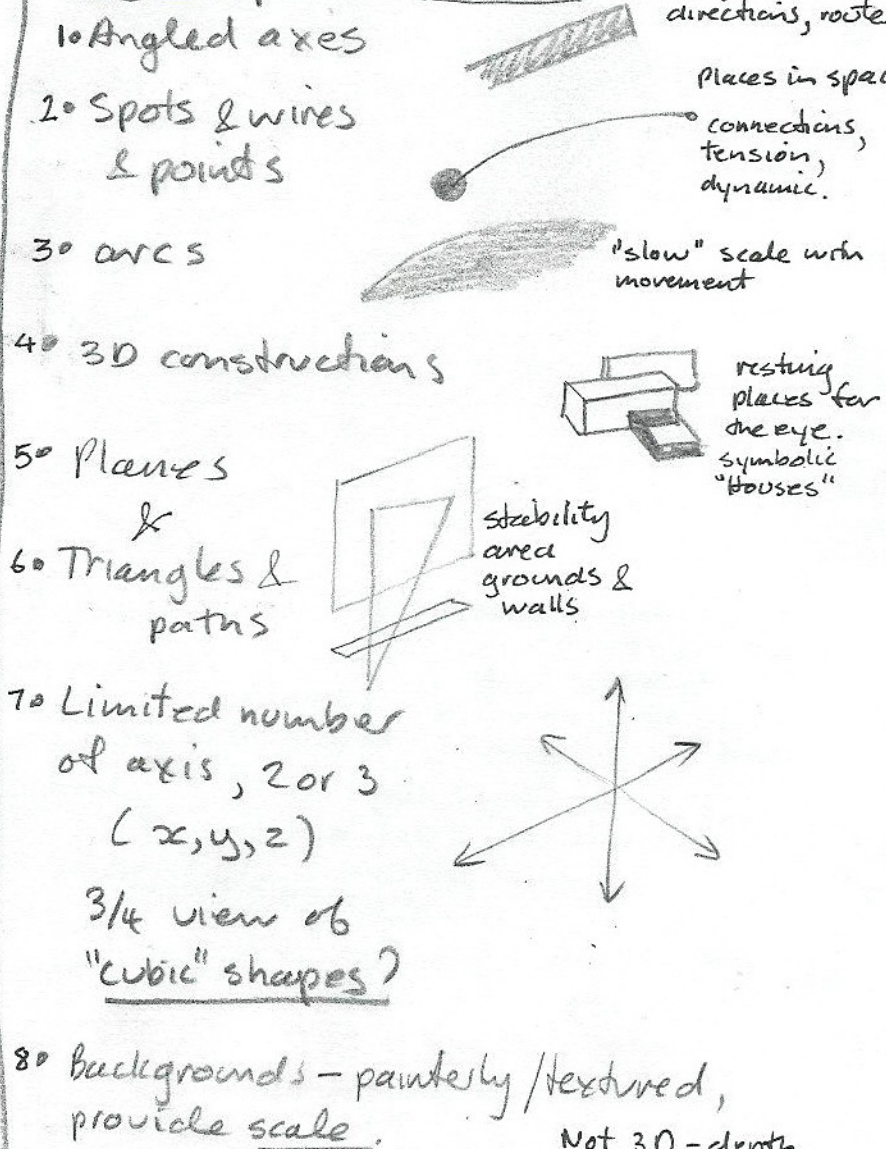 1. Angled axes
directions, route
Places in spac
2. Spots & wires
& points
connections,
tension,
dynamic.
3. arcs
"slow" scale with
movement
4. 3D constructions
resting
places for
the eye.
symbolic
"Houses"
5. Planes
&
6. Triangles &
paths
stability
area
grounds &
walls
7. Limited number
of axis, 2 or 3
(x, y, z)
3/4 view of
"cubic" shapes?
8. Backgrounds - painterly / textured,
provide scale.
Not 3D - depth